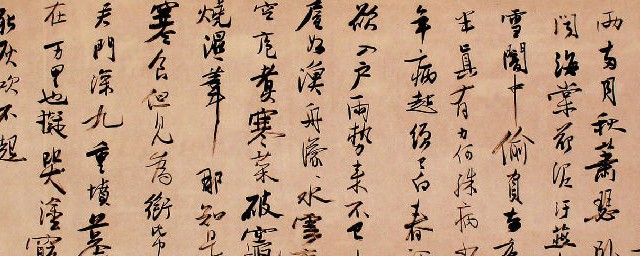 雨兩月秋蕭瑟臥
聞海棠花泥污燕
雪闇中偷負去夜
半真有力何殊病少
年病起頭已白春江
欲入戶雨勢來不已
屋如漁舟濛〻水雲
空庖煮寒菜破竈
燒濕葦那知是
寒食但見烏銜帋
君門深九重墳墓
在萬里也擬哭塗窮
死灰吹不起